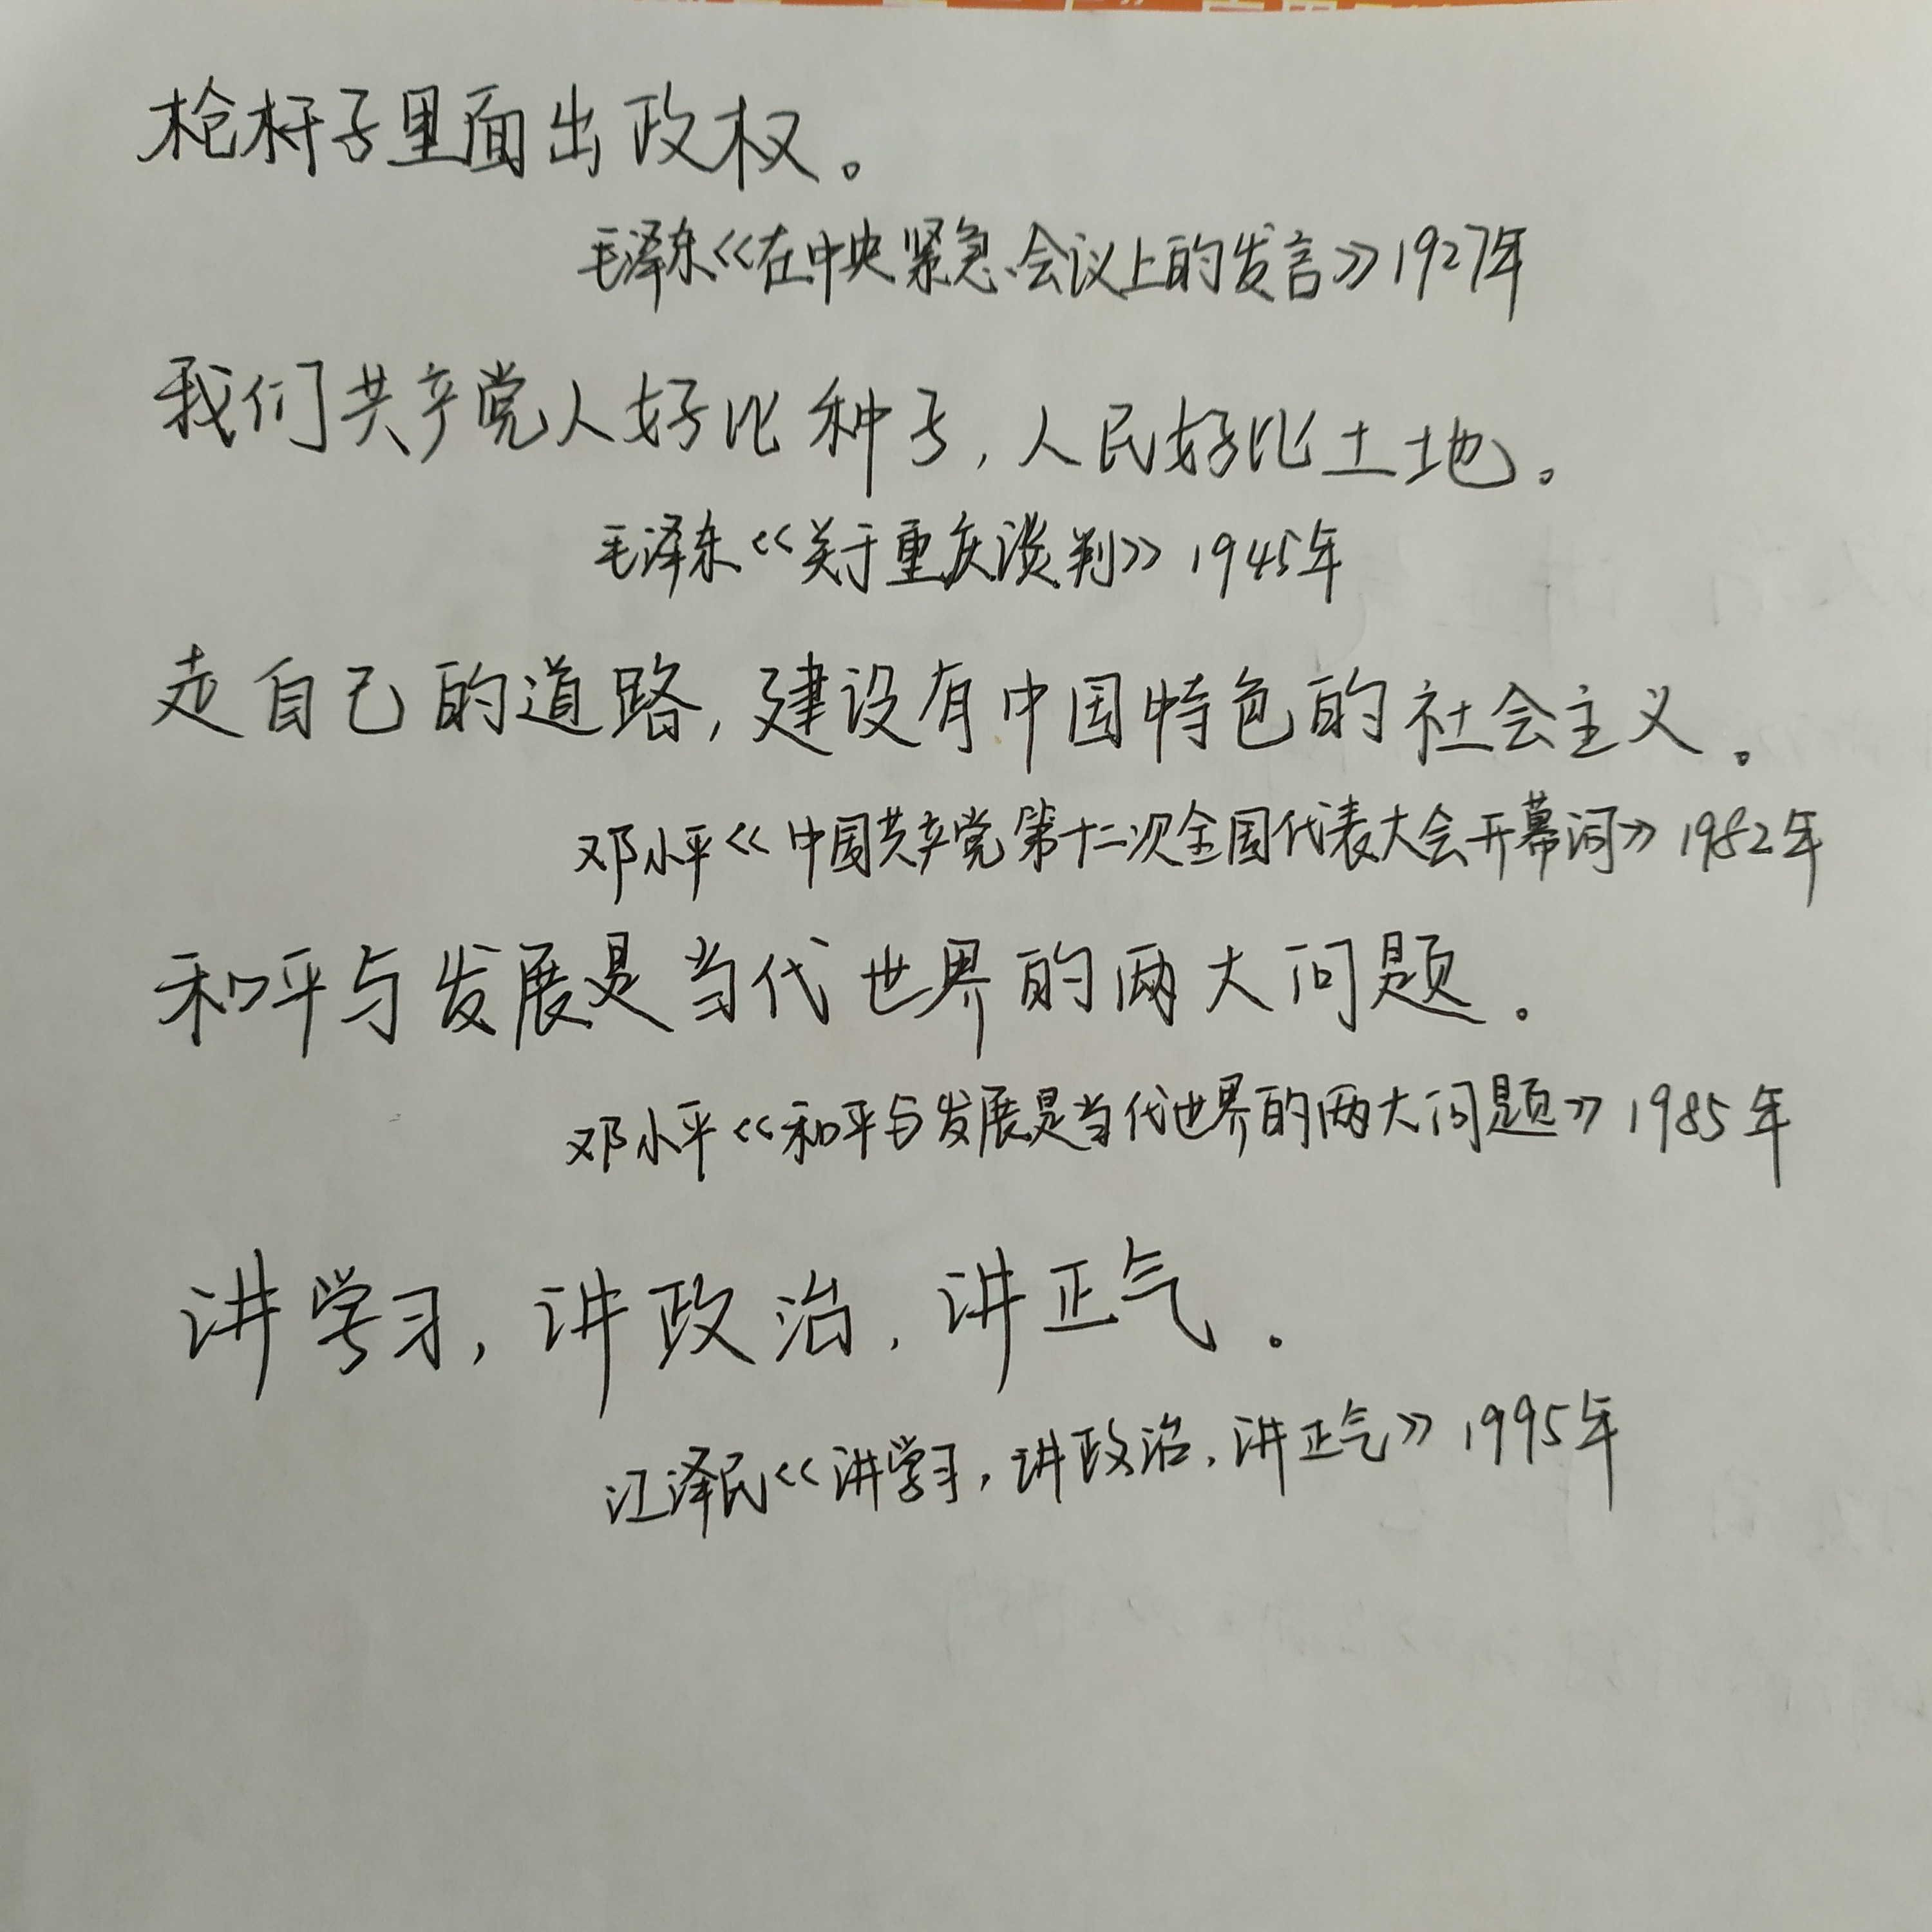 枪杆子里面出政权。
毛泽东《在中央紧急会议上的发言》1927年
我们共产党人好比种子,人民好比土地。
毛泽东《关于重庆谈判》1945年
走自己的道路,建设有中国特色的社会主义。
邓小平《中国共产党第十二次全国代表大会开幕词》1982年
和平与发展是当代世界的两大问题.
邓小平《和平与发展是当代世界的两大问题》1985年
讲学习,讲政治,讲正气.
江泽民《讲学习,讲政治,讲正气》1995年